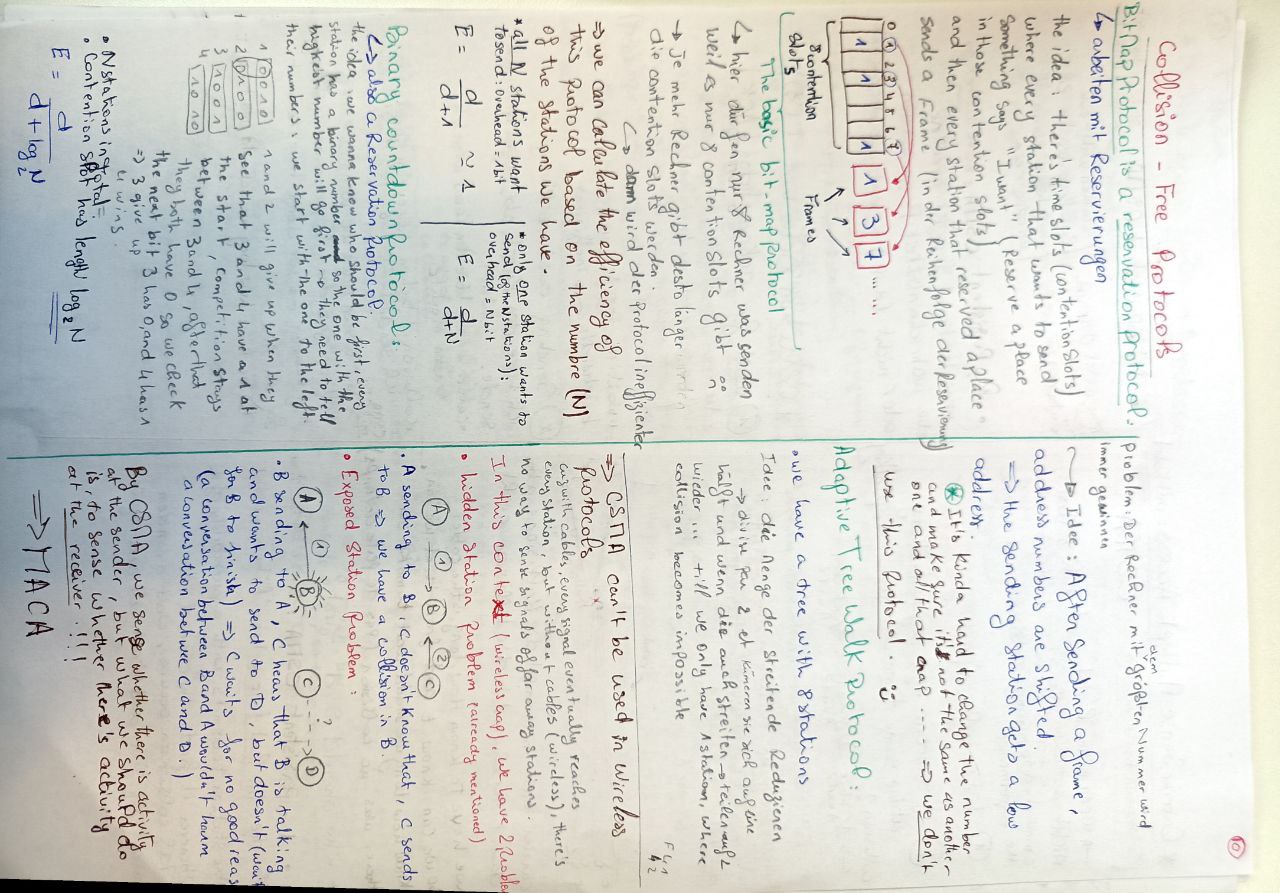 10
Collision - Free Protocols
BitMap Protocol is a reservation protocol.
↳ arbeiten mit Reservierungen
the idea : there's time slots (contention slots)
where every station that wants to send
something says "I want" (Reserve a place
in those contention slots)
and then every station that reserved a place
sends a Frame (in der Reihenfolge der Reservierung)
0 1 2 3 4 5 6 7
1 1 1 1 3 7 ... ...
8 contention
slots
Frames
The basic bit-map protocol
↳ hier dürfen nur 8 Rechner was senden
weil es nur 8 contention slots gibt
→ Je mehr Rechner gibt desto länger
die contention slots werden.
↳ dann wird der Protocol ineffizienter
⇒ we can calculate the efficiency of
this protocol based on the numbre (N)
of the stations we have.
* all N stations want
to send : overhead = 1 bit
E = d / d+1 ≃ 1
* only one station wants to
send (of the N stations) :
overhead = N bit
E = d / d+N
Binary countdown Protocol:
↳ also a Reservation Protocol.
the idea : we wanna know who should be first, every
station has a binary number so the one with the
highest number will go first → they need to tell
their numbers : we start with the one to the left.
1 0 0 1 0
2 0 1 0 0
3 1 0 0 1
4 1 0 1 0
1 and 2 will give up when they
see that 3 and 4 have a 1 at
the start, competition stays
between 3 and 4, after that
they both have 0 so we check
the next bit 3 has 0, and 4 has 1
⇒ 3 give up
4 wins.
• N stations in total.
• Contention slot has length log₂N
E = d / d + log₂N
Problem : Der Rechner mit dem größten Nummer wird
immer gewinnen
→ Idee : After sending a frame,
address numbers are shifted.
⇒ the sending station gets a low
address.
* It's kinda hard to change the number
and make sure it's not the same as another
one and all that crap .... ⇒ we don't
use this Protocol.
Adaptive Tree Walk Protocol:
• we have a tree with 8 stations
Idee : die Menge der streitende Reduzieren
→ divise par 2 et kümeren sie sich auf eine
hälft und wenn die auch streiten → teilen auf 2
wieder ... till we only have 1 station, where
collision becomes impossible
F 41
42
⇒ CSMA can't be used in wireless
Protocols
cuz with cables, every signal eventually reaches
every station, but without cables (wireless), there's
no way to sense signals of far away stations.
In this context (wireless crap), we have 2 Problem
• hidden station problem (already mentioned)
A 1 B 2 C
• A sending to B, C doesn't know that, C sends
to B ⇒ we have a collision in B.
• Exposed Station Problem :
A 1 B C ? D
• B sending to A, C hears that B is talking
and wants to send to D, but doesn't (wait
for B to finish) ⇒ C waits for no good reas
(a conversation between B and A wouldn't harm
a conversation betwee C and D.)
By CSMA, we sense whether there is activity
at the sender, but what we should do
is, to sense whether there's activity
at the receiver !!!
⇒ MACA